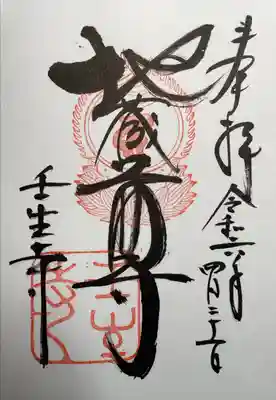 奉拝
令和六年
四月二十二日
地蔵尊
壬生寺